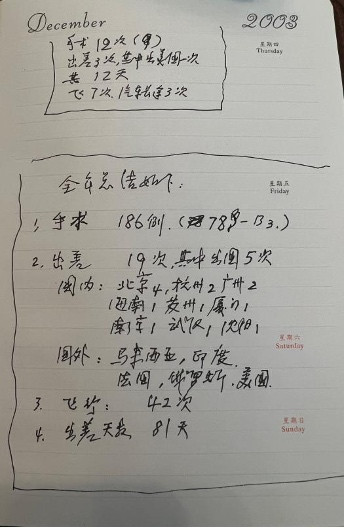 December 2003
星期四
Thursday
手术 12次
出差3次,其中出美国一次
共 12天
飞7次,汽车长途3次
星期五
Friday
全年总结如下:
1, 手术 186例.
2. 出差 19次,其中出国5次
国内: 北京4,杭州2 广州2
海南1 苏州1 厦门1
南京1 武汉1 沈阳1
星期六
Saturday
国外: 马来西亚,印度
法国,俄罗斯,美国
3. 飞行: 42次
星期日
Sunday
4. 出差天数 81天